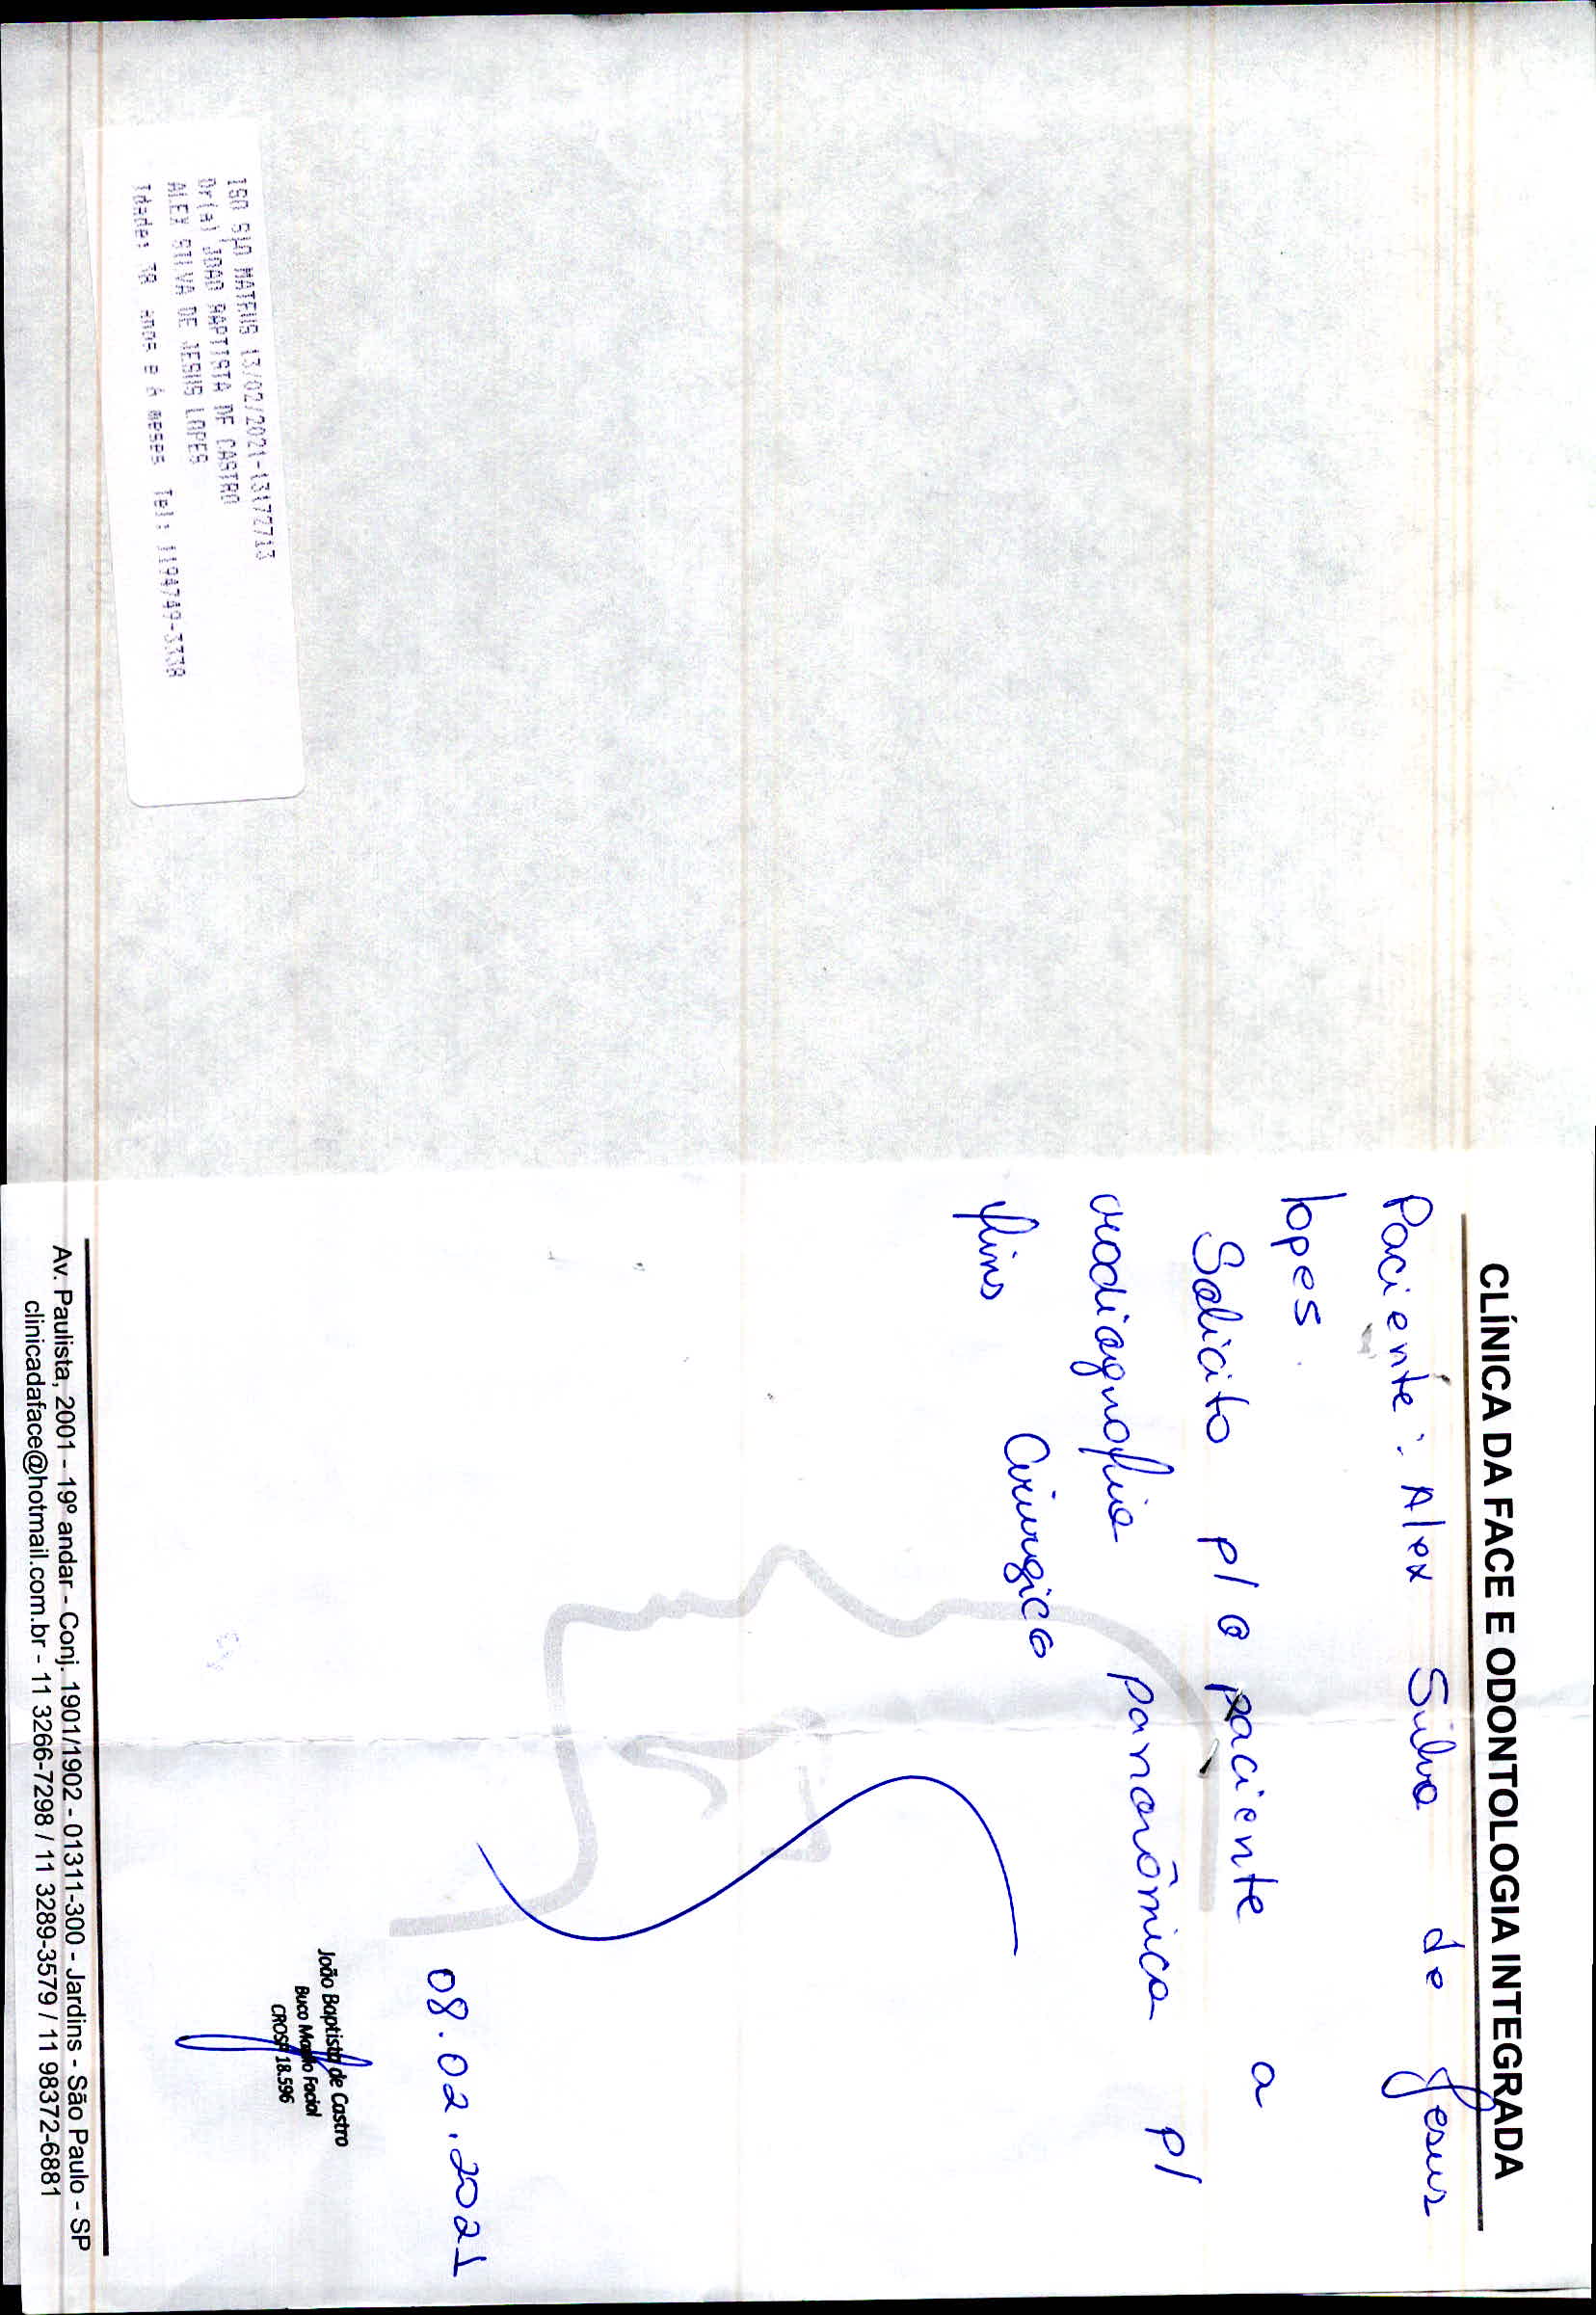 CLÍNICA DA FACE E ODONTOLOGIA INTEGRADA
Paciente: Alex Silva de Jesus
lopes.
Solicito p/ o paciente a
radiografia panorâmica p/
fins cirurgico
08.02.2021
João Baptista de Castro
Buco Maxilo Facial
CROSP 18.596
Av. Paulista, 2001 - 19º andar - Conj. 1901/1902 - 01311-300 - Jardins - São Paulo - SP
clinicadaface@hotmail.com.br - 11 3266-7298 / 11 3289-3579 / 11 98372-6881
MATEUS 13/02/2021-13172713
Dr(a) JOAO BAPTISTA DE CASTRO
ALEX SILVA DE JESUS LOPES
Idade: anos e 6 meses Tel: 1194749-3338